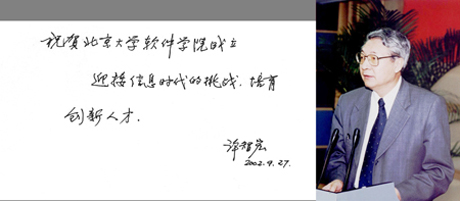 祝贺北京大学软件学院成立
迎接信息时代的挑战，培育
创新人才.
许智宏
2002.9.27.